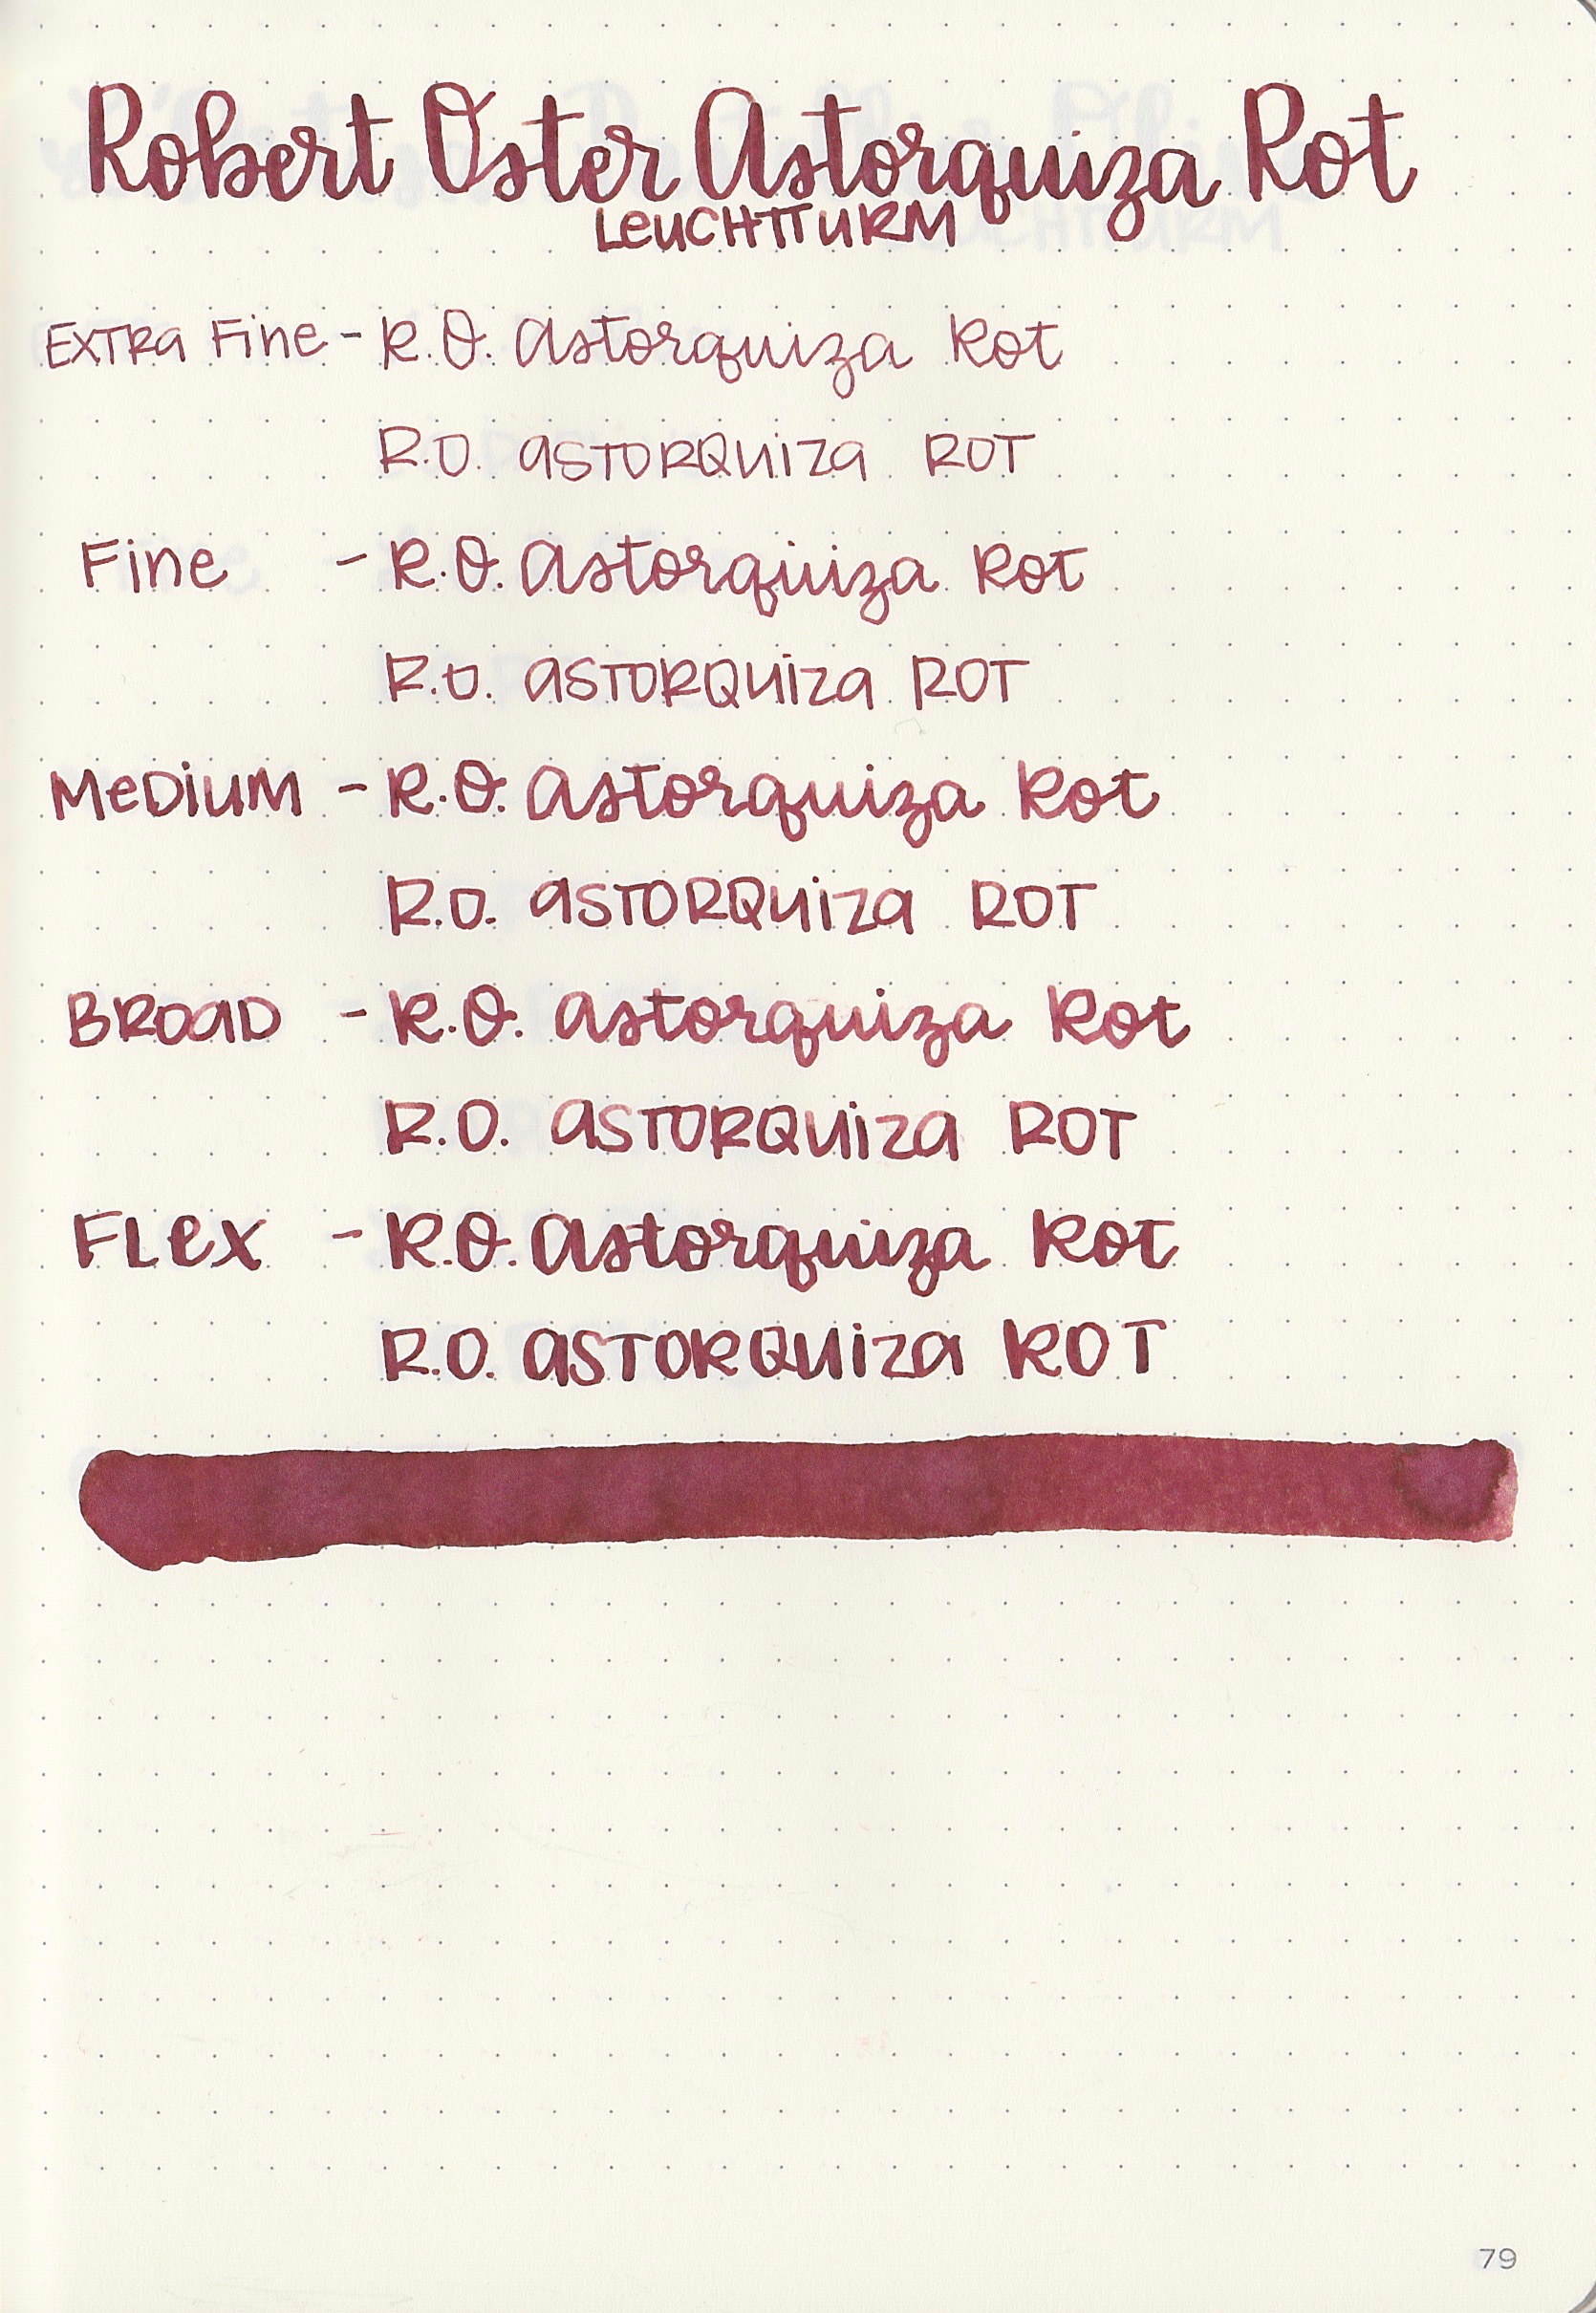 Robert Oster Astorquiza Rot
LEUCHTTURM
EXTRA FINE - R.O. Astorquiza Rot
R.O. ASTORQUIZA ROT
FINE - R.O. Astorquiza Rot
R.O. ASTORQUIZA ROT
MEDIUM - R.O. Astorquiza Rot
R.O. ASTORQUIZA ROT
BROAD - R.O. Astorquiza Rot
R.O. ASTORQUIZA ROT
FLEX - R.O. Astorquiza Rot
R.O. ASTORQUIZA ROT
79